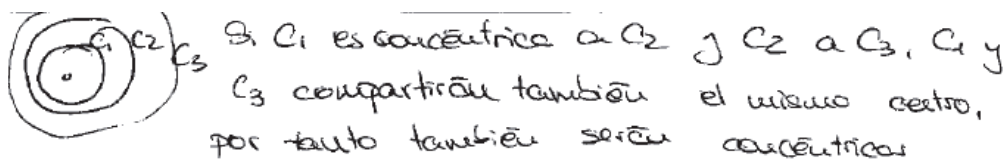 C1 C2 C3 Si C1 es concéntrica a C2 y C2 a C3, C1 y
C3 compartirán también el mismo centro,
por tanto también serán concéntricas